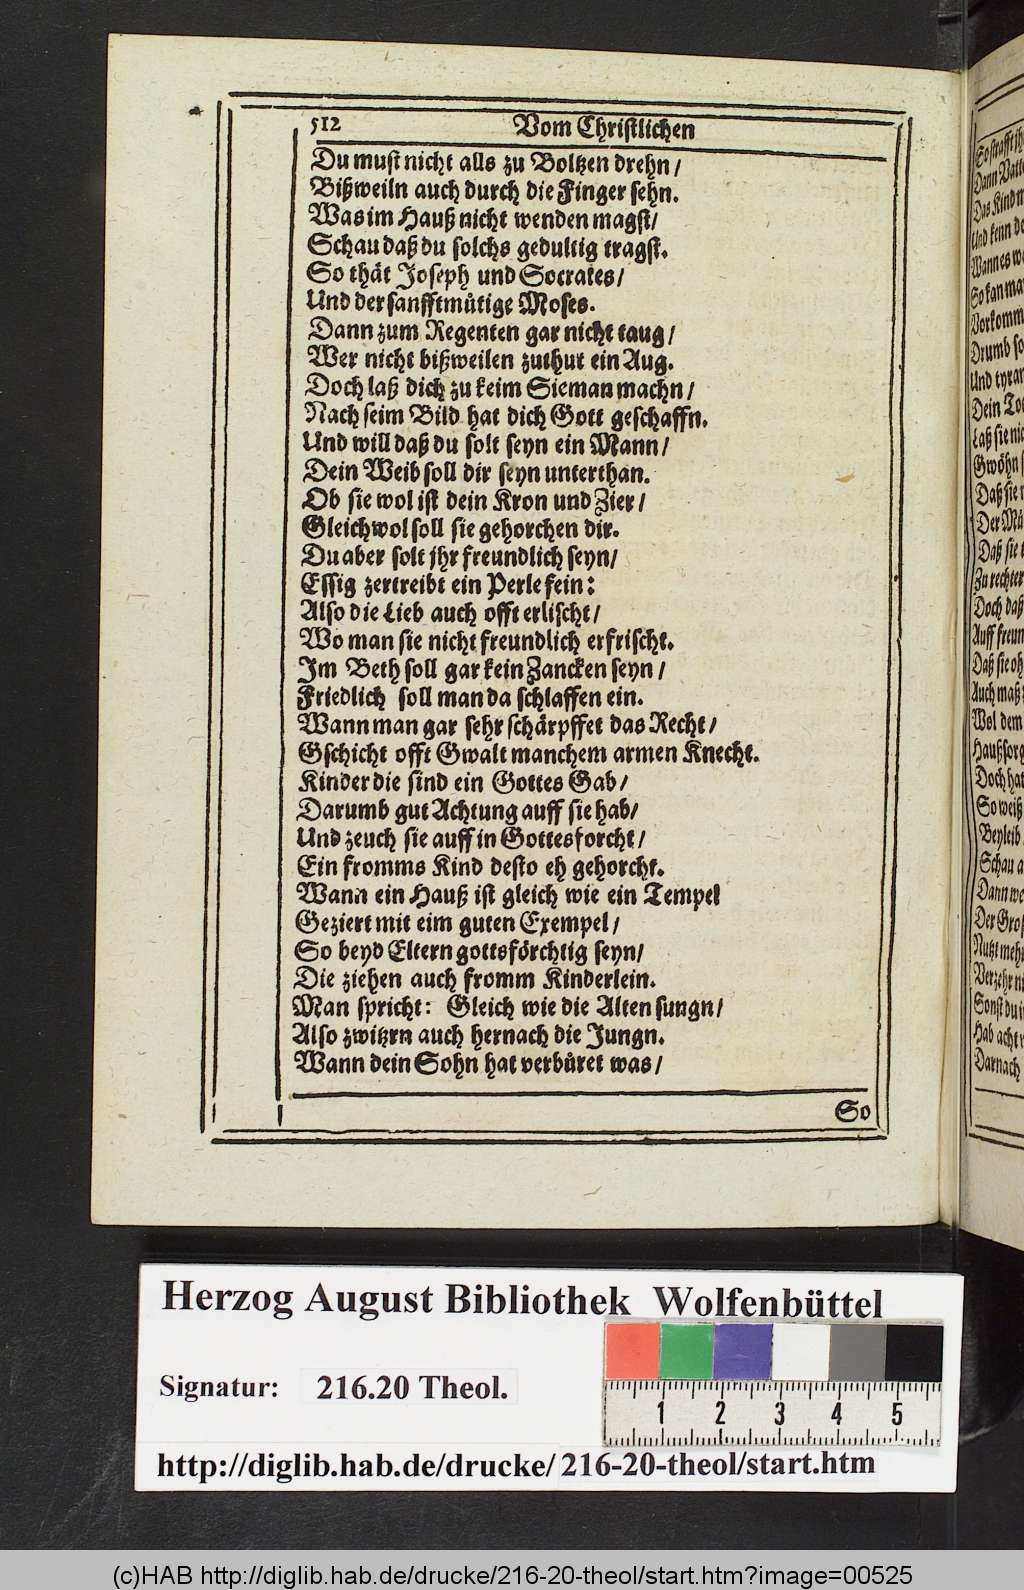 512 Vom Christlichen
Du must nicht alls zu Boltzen drehn /
Bißweiln auch durch die Finger sehn.
Was im Hauß nicht wenden magst /
Schau daß du solchs gedultig tragst.
So thät Joseph und Socrates /
Und der sanfftmütige Moses.
Dann zum Regenten gar nicht taug /
Wer nicht bißweilen zuthut ein Aug.
Doch laß dich zu keim Sieman machn /
Nach seim Bild hat dich Gott geschaffn.
Und will daß du solt seyn ein Mann /
Dein Weib soll dir seyn unterthan.
Ob sie wol ist dein Kron und Zier /
Gleichwol soll sie gehorchen dir.
Du aber solt jhr freundlich seyn /
Essig zertreibt ein Perle fein:
Also die Lieb auch offt erlischt /
Wo man sie nicht freundlich erfrischt.
Im Beth soll gar kein Zancken seyn /
Friedlich soll man da schlaffen ein.
Wann man gar sehr schärpffet das Recht /
Gschicht offt Gwalt manchem armen Knecht.
Kinder die sind ein Gottes Gab /
Darumb gut Achtung auff sie hab /
Und zeuch sie auff in Gottesforcht /
Ein fromms Kind desto eh gehorcht.
Wann ein Hauß ist gleich wie ein Tempel
Geziert mit eim guten Exempel /
So beyd Eltern gottsförchtig seyn /
Die ziehen auch fromm Kinderlein.
Man spricht: Gleich wie die Alten sungn /
Also zwitzrn auch hernach die Jungn.
Wann dein Sohn hat verbüret was /
So
So strafft jh
Dann Vatte
Das Kind n
Und kenn de
Wann es we
So kan ma
Vorkomm
Drumb so
Und tyran
Dein To
Laß sie nic
Gwöhn s
Daß sie
Der Mü
Daß sie
Zu rechter
Doch daß
Auff freun
Daß sie oh
Auch maß
Wol dem
Haußsorg
Doch hat
So weiß
Beyleib
Schau a
Dann we
Der Groß
Nutzt meh
Verzehr n
Sonst du i
Hab acht
Darnach
Herzog August Bibliothek Wolfenbüttel
Signatur: 216.20 Theol.
1 2 3 4 5
http://diglib.hab.de/drucke/216-20-theol/start.htm
(c)HAB http://diglib.hab.de/drucke/216-20-theol/start.htm?image=00525